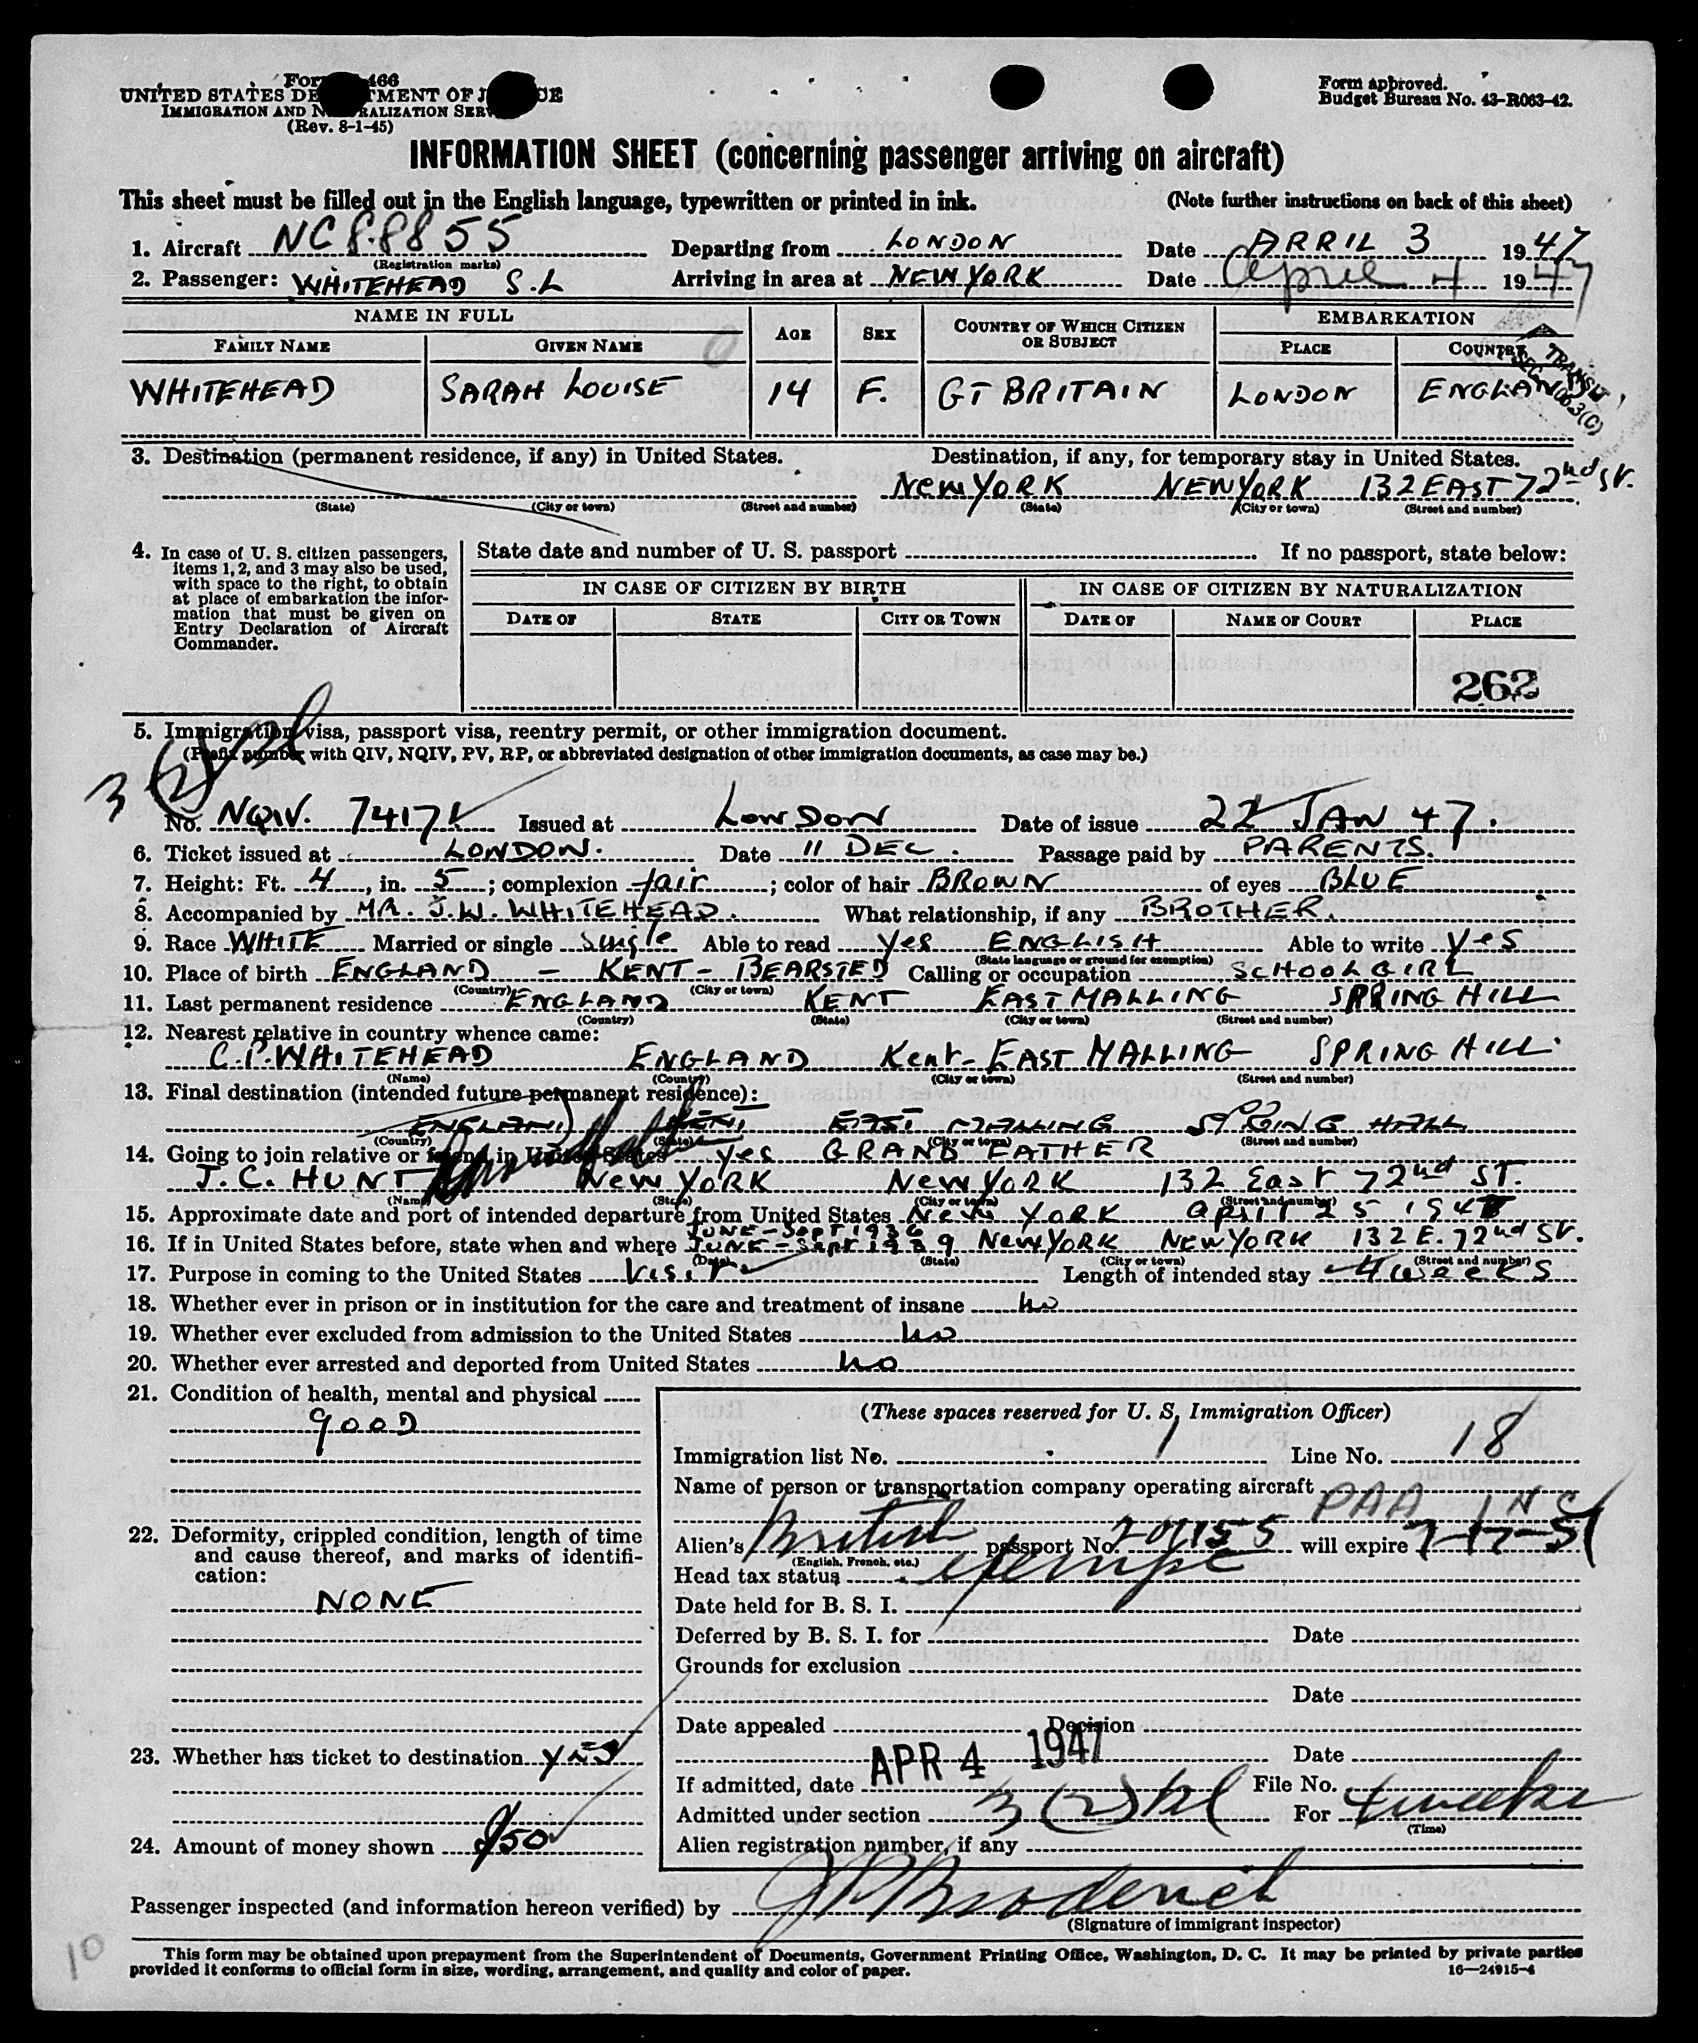 Form 466
UNITED STATES DE TMENT OF J CE
IMMIGRATION AND N RALIZATION SERV
(Rev. 8-1-45)
Form approved.
Budget Bureau No. 43-R063-42.
INFORMATION SHEET (concerning passenger arriving on aircraft)
This sheet must be filled out in the English language, typewritten or printed in ink. (Note further instructions on back of this sheet)
1. Aircraft NC 88855 Departing from LONDON Date APRIL 3 1947
(Registration marks)
2. Passenger: WHITEHEAD S.L Arriving in area at NEW YORK Date April 4 1947
NAME IN FULL AGE SEX COUNTRY OF WHICH CITIZEN OR SUBJECT EMBARKATION
FAMILY NAME GIVEN NAME PLACE COUNTRY
TRANSIT
SEC. 3(C)
WHITEHEAD SARAH LOUISE 14 F. GT BRITAIN LONDON ENGLAND
3. Destination (permanent residence, if any) in United States. Destination, if any, for temporary stay in United States.
NEW YORK NEW YORK 132 EAST 72nd ST.
(State) (City or town) (Street and number) (State) (City or town) (Street and number)
4. In case of U. S. citizen passengers, items 1, 2, and 3 may also be used, with space to the right, to obtain at place of embarkation the information that must be given on Entry Declaration of Aircraft Commander.
State date and number of U. S. passport If no passport, state below:
IN CASE OF CITIZEN BY BIRTH IN CASE OF CITIZEN BY NATURALIZATION
DATE OF STATE CITY OR TOWN DATE OF NAME OF COURT PLACE
262
5. Immigration visa, passport visa, reentry permit, or other immigration document.
(Prefix number with QIV, NQIV, PV, RP, or abbreviated designation of other immigration documents, as case may be.)
3 (2)
No. NQIV. 7417 Issued at LONDON Date of issue 22 JAN 47.
6. Ticket issued at LONDON. Date 11 DEC. Passage paid by PARENTS.
7. Height: Ft. 4, in. 5; complexion fair; color of hair BROWN of eyes BLUE
8. Accompanied by MR. J.W. WHITEHEAD. What relationship, if any BROTHER.
9. Race WHITE Married or single Single Able to read yes ENGLISH Able to write yes
(State language or ground for exemption)
10. Place of birth ENGLAND - KENT - BEARSTED Calling or occupation SCHOOLGIRL
(Country) (City or town)
11. Last permanent residence ENGLAND KENT EAST MALLING SPRING HILL
(Country) (State) (City or town) (Street and number)
12. Nearest relative in country whence came:
C.P. WHITEHEAD ENGLAND Kent - EAST MALLING SPRING HILL
(Name) (Country) (City or town) (Street and number)
13. Final destination (intended future permanent residence):
ENGLAND KENT EAST MALLING SPRING HILL
(Country) (State) (City or town) (Street and number)
14. Going to join relative or friend in United States yes GRANDFATHER
J. C. HUNT NEW YORK NEW YORK 132 East 72nd ST.
(Name) (State) (City or town) (Street and number)
15. Approximate date and port of intended departure from United States NEW YORK April 25 1947
JUNE - SEPT 1936
16. If in United States before, state when and where JUNE - Sept 1939 NEW YORK NEW YORK 132 E. 72nd ST.
(Date) (State) (City or town) (Street and number)
17. Purpose in coming to the United States Visit Length of intended stay 4 weeks
18. Whether ever in prison or in institution for the care and treatment of insane no
19. Whether ever excluded from admission to the United States no
20. Whether ever arrested and deported from United States no
21. Condition of health, mental and physical
good
22. Deformity, crippled condition, length of time and cause thereof, and marks of identification:
NONE
23. Whether has ticket to destination yes
24. Amount of money shown $50
(These spaces reserved for U. S. Immigration Officer)
Immigration list No. 1 Line No. 18
Name of person or transportation company operating aircraft PAA INC
Alien's British passport No. 209155 will expire 7-17-51
(English, French, etc.)
Head tax status exempt
Date held for B. S. I.
Deferred by B. S. I. for Date
Grounds for exclusion
Date
Date appealed Decision
Date
If admitted, date APR 4 1947 File No.
Admitted under section 3(2) For 4 weeks
(Time)
Alien registration number, if any
Passenger inspected (and information hereon verified) by J P Broderick
(Signature of immigrant inspector)
10
This form may be obtained upon prepayment from the Superintendent of Documents, Government Printing Office, Washington, D. C. It may be printed by private parties
provided it conforms to official form in size, wording, arrangement, and quality and color of paper. 16—24915-4